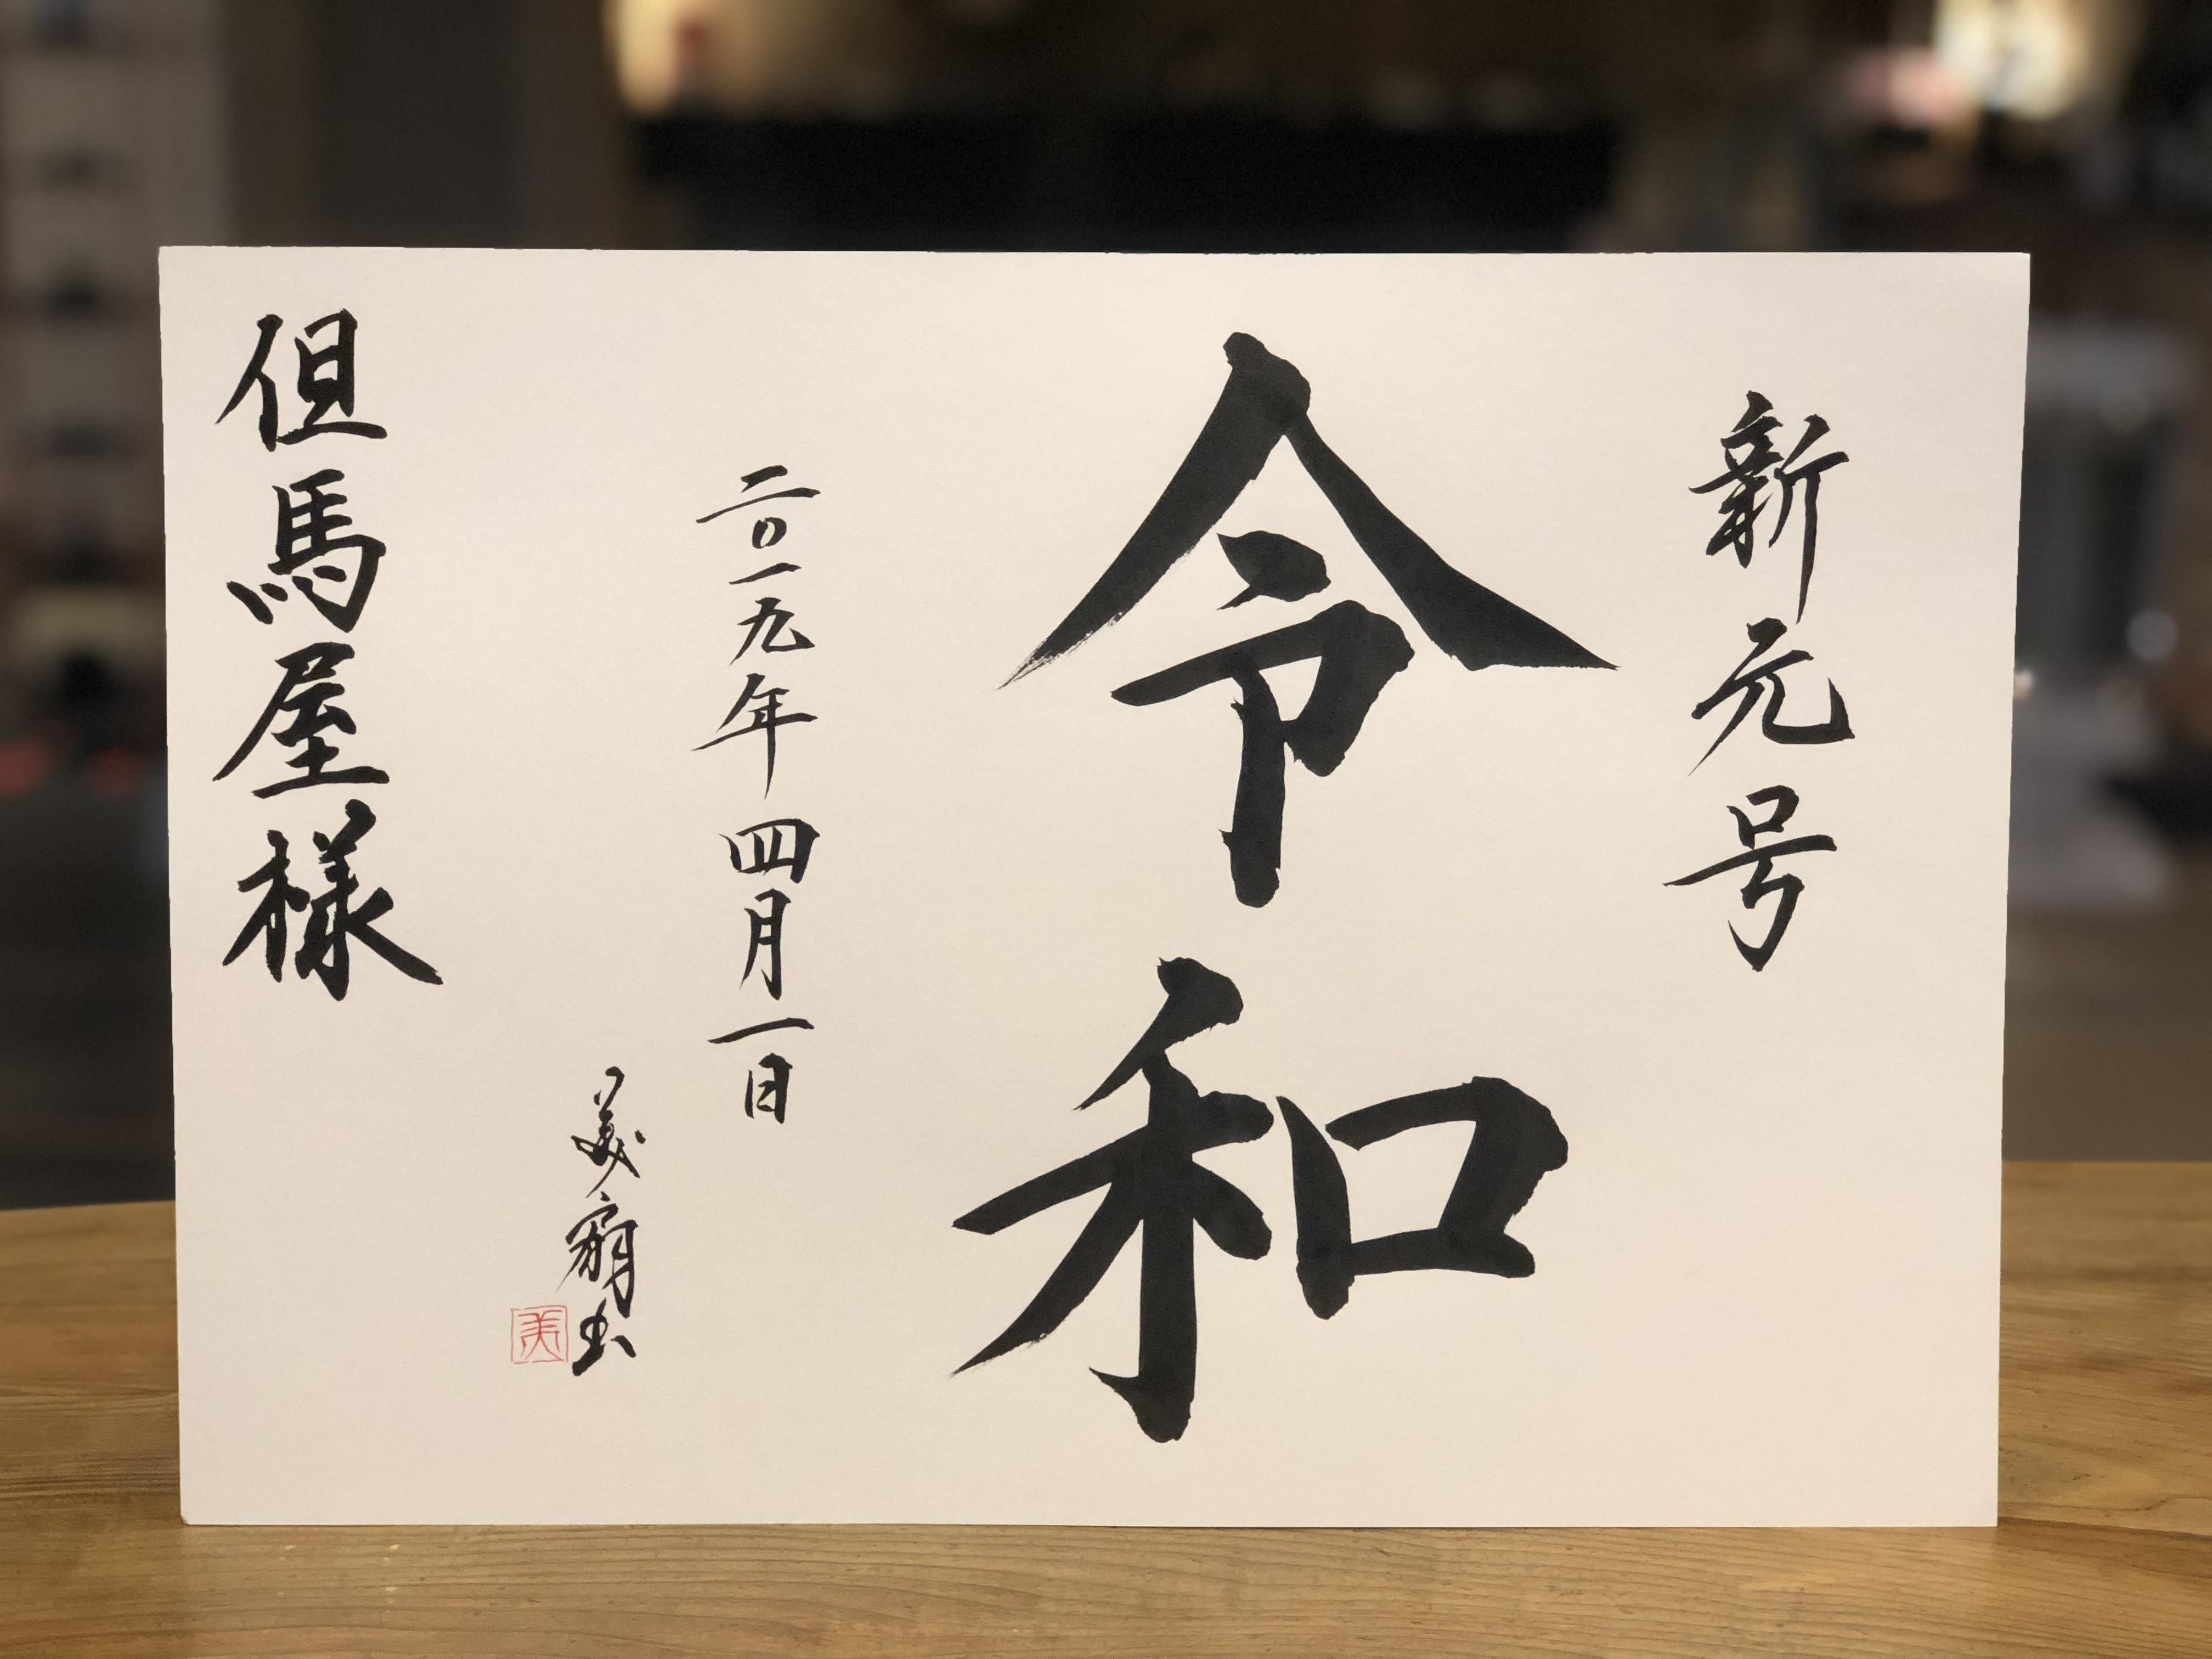 新元号
令和
二〇一九年四月一日
美扇書
美
但馬屋様